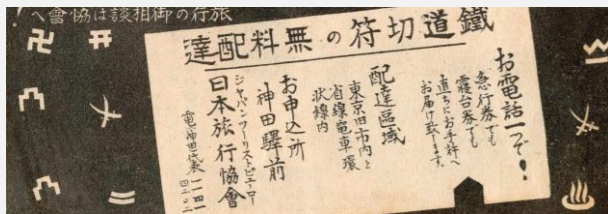 旅行の御相談は協會へ!
鐵道切符の無料配達
お電話一つで!
急行券でも
寢台券でも
直ちにお手許へ
お届け致します。
配達區域
東京旧市内と
省線電車環
状線内
お申込所
神田驛前
ジャパンツーリストビューロー
日本旅行協會
電神田代表